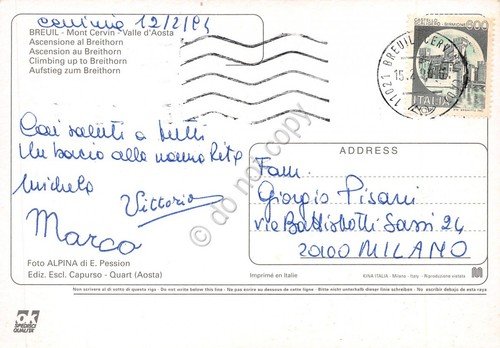 cervinia 12/2/84
BREUIL - Mont Cervin - Valle d'Aosta
Ascensione al Breithorn
Ascension au Breithorn
Climbing up to Breithorn
Aufstieg zum Breithorn
CASTELLO SCALIGERO - SIRMIONE 600
ITALIA
11021 BREUIL CERVINIA
15.2
Cari saluti a tutti
Un bacio alla nonna Rita
Michela
Vittorio
Marco
Foto ALPINA di E. Pession
Ediz. Escl. Capurso - Quart (Aosta)
ADDRESS
Fam.
Giorgio Pisani
via Battistotti Sassi 24
20100 MILANO
Imprimé en Italie
KINA ITALIA - Milano - Italy - Riproduzione vietata
Non scrivere al di sotto di questa riga - Do not write below this line - Ne pas écrire au dessous de cette ligne - Bitte nicht unterhalb dieser linie schreiben - No escribir debajo de esta raya
ok
SPEDISCI
QUALITÀ
do not copy